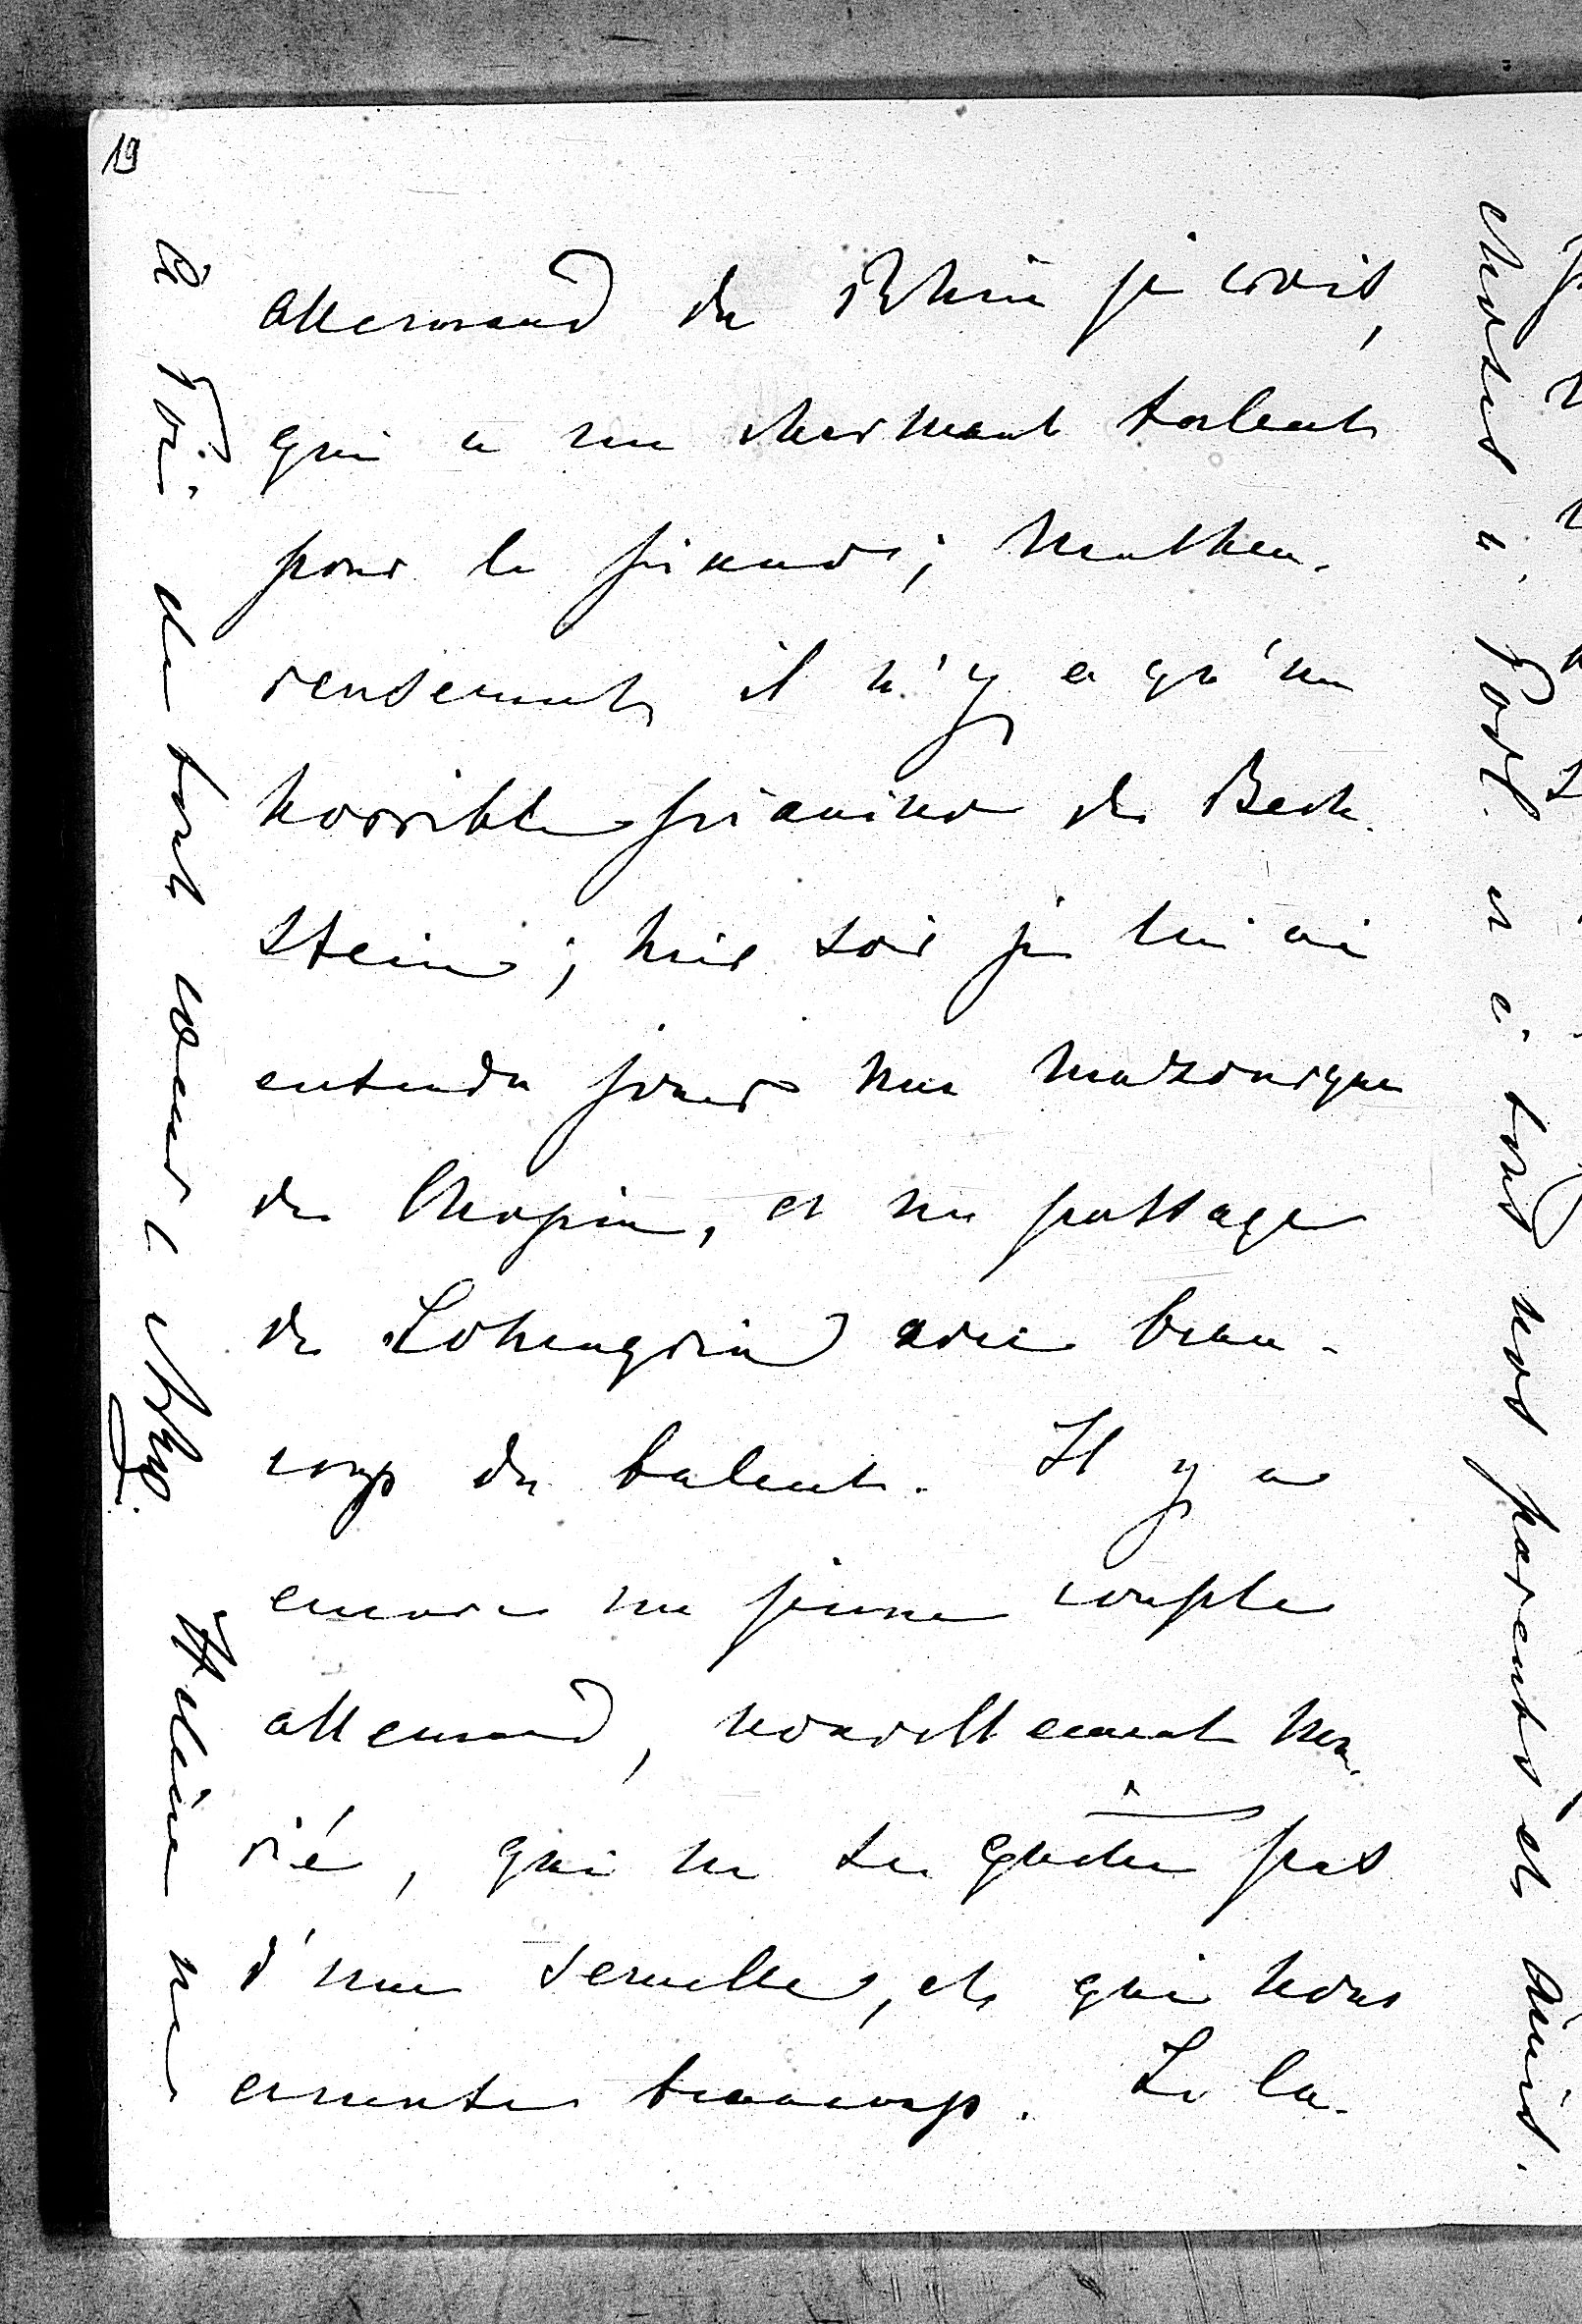 19
allemand du Rhin je crois,
qui a un charmant talent
pour le piano; malheu-
reusement il n'y a qu'un
horrible pianino de Bech-
stein; hier soir je lui ai
entendu jouer une mazourque
de Chopin, et un passage
de Lohengrin avec beau-
coup de talent. Il y a
encore un jeune couple
allemand, nouvellement ma-
rié, qui ne se quitte pas
d'une semelle, et qui nous
amuse beaucoup. Le la-
à Toi de tout cœur
Hélène
nos parents et amis.